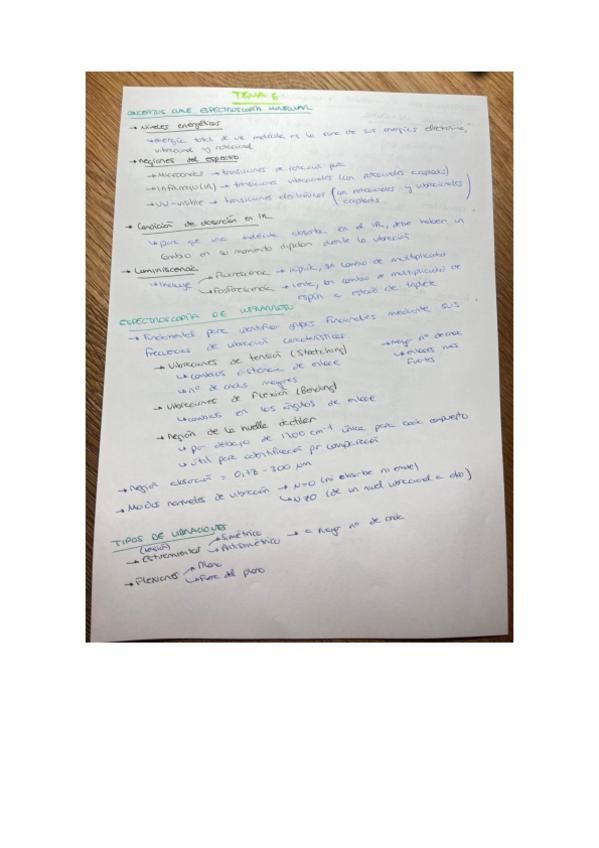 TEMA 6
CONCEPTOS CLAVE ESPECTROSCOPÍA MOLECULAR
→ Niveles energéticos
↳ energía total de una molécula es la suma de sus energías electrónica,
vibracional y rotacional
→ Regiones del espectro
→ Microondas → transiciones de rotación pura
→ Infrarrojo (IR) → transiciones vibracionales (con rotacionales acopladas)
→ UV-visible → transiciones electrónicas (con rotacionales y vibracionales acopladas)
→ Condición de absorción en IR
↳ para que una molécula absorba en el IR, debe haber un
cambio en su momento dipolar durante la vibración
→ Luminiscencia
↳ Incluye → Fluorescencia → rápida, sin cambio de multiplicidad
↳ Fosforescencia → lenta, con cambio de multiplicidad de
espín a estado de triplete
ESPECTROSCOPÍA DE INFRARROJO
→ Fundamental para identificar grupos funcionales mediante sus
frecuencias de vibración características
→ Vibraciones de tensión (Stretching)
↳ cambios distancia de enlace
↳ nº de ondas mayores
→ Mayor nº de onda
↳ enlaces más
fuertes
→ Vibraciones de Flexión (Bending)
↳ cambios en los ángulos de enlace
→ Región de la huella dactilar
↳ por debajo de 1200 cm⁻¹ única para cada compuesto
↳ útil para identificación por comparación
→ Región absorción = 0,78 - 300 µm
→ Modos normales de vibración → N=0 (ni absorbe ni emite)
↳ N≠0 (de un nivel vibracional a otro)
TIPOS DE VIBRACIONES
(tensión)
→ Estiramientos → Simétrico
↳ Antisimétrico → = Mayor nº de onda
→ Flexiones → Plano
↳ Fuera del plano